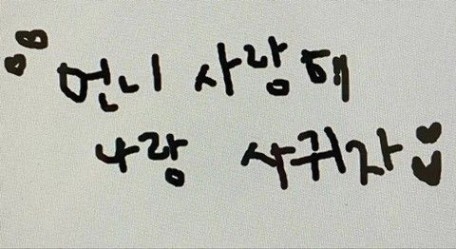 언니 사랑해
나랑 사귀자